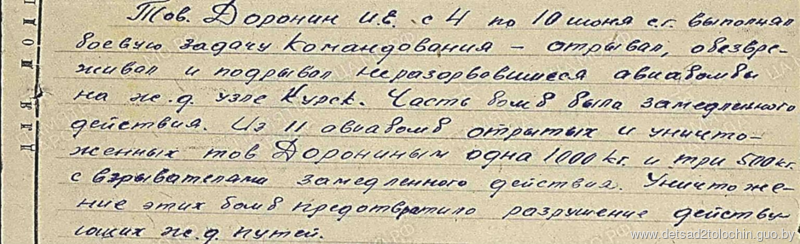 Тов. Доронин И.Е. с 4 по 10 июня с.г. выполнял
боевую задачу Командования – отрывал, обезвре-
живал и подрывал неразорвавшиеся авиабомбы
на ж.д. узле Курск. Часть бомб была замедленного
действия. Из 11 авиабомб отрытых и уничто-
женных тов Дорониным одна 1000 кг. и три 500 кг.
с взрывателями замедленного действия. Уничтоже-
ние этих бомб предотвратило разрушение действу-
ющих ж.д. путей.
www.detsad2tolochin.guo.by